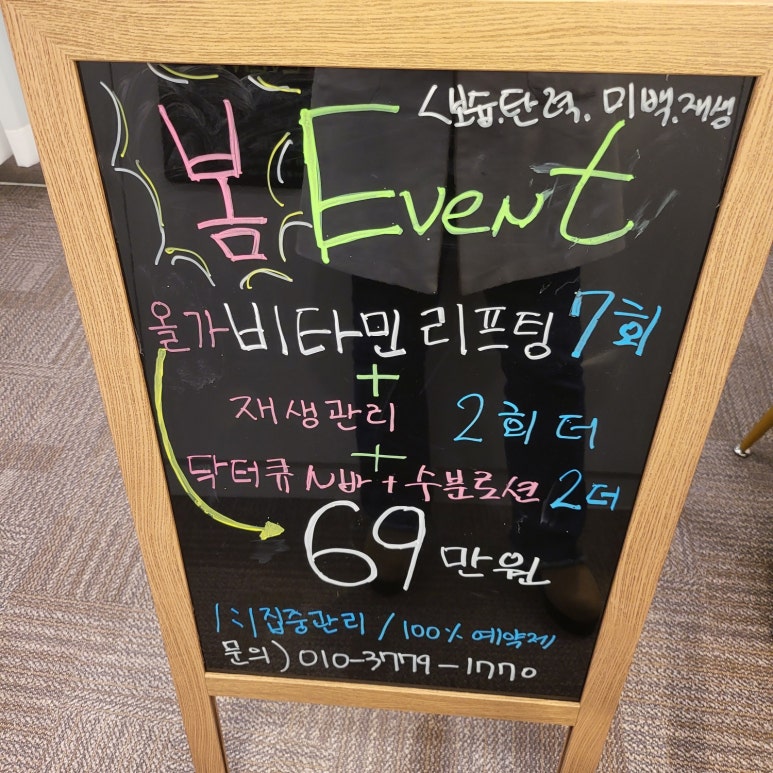 <보습.탄력. 미백.재생
봄 Event
올가 비타민 리프팅 7회
+
재생관리 2회 더
+
닥터큐 N바 + 수분로션 2더
69만원
1:1 집중관리 / 100% 예약제
문의) 010-3779-1770